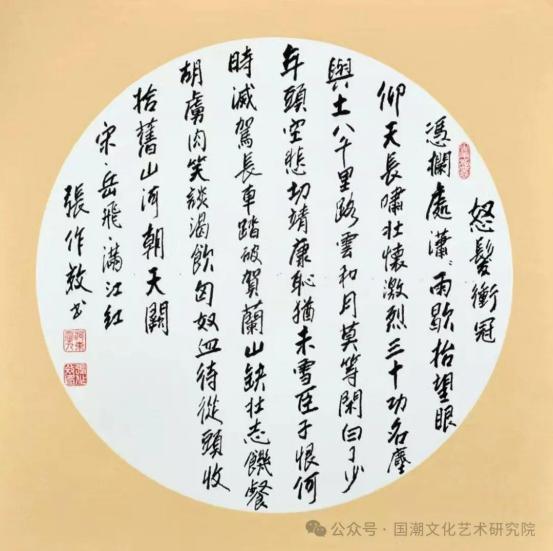 怒髮衝冠
憑欄處瀟〻雨歇抬望眼
仰天長嘯壯懷激烈三十功名塵
與土八千里路雲和月莫等閑白了少
年頭空悲切靖康恥猶未雪臣子恨何
時滅駕長車踏破賀蘭山缺壯志饑餐
胡虜肉笑談渴飲匈奴血待從頭收
拾舊山河朝天闕
宋·岳飛·滿江紅
張作書
公众号·国潮文化艺术研究院